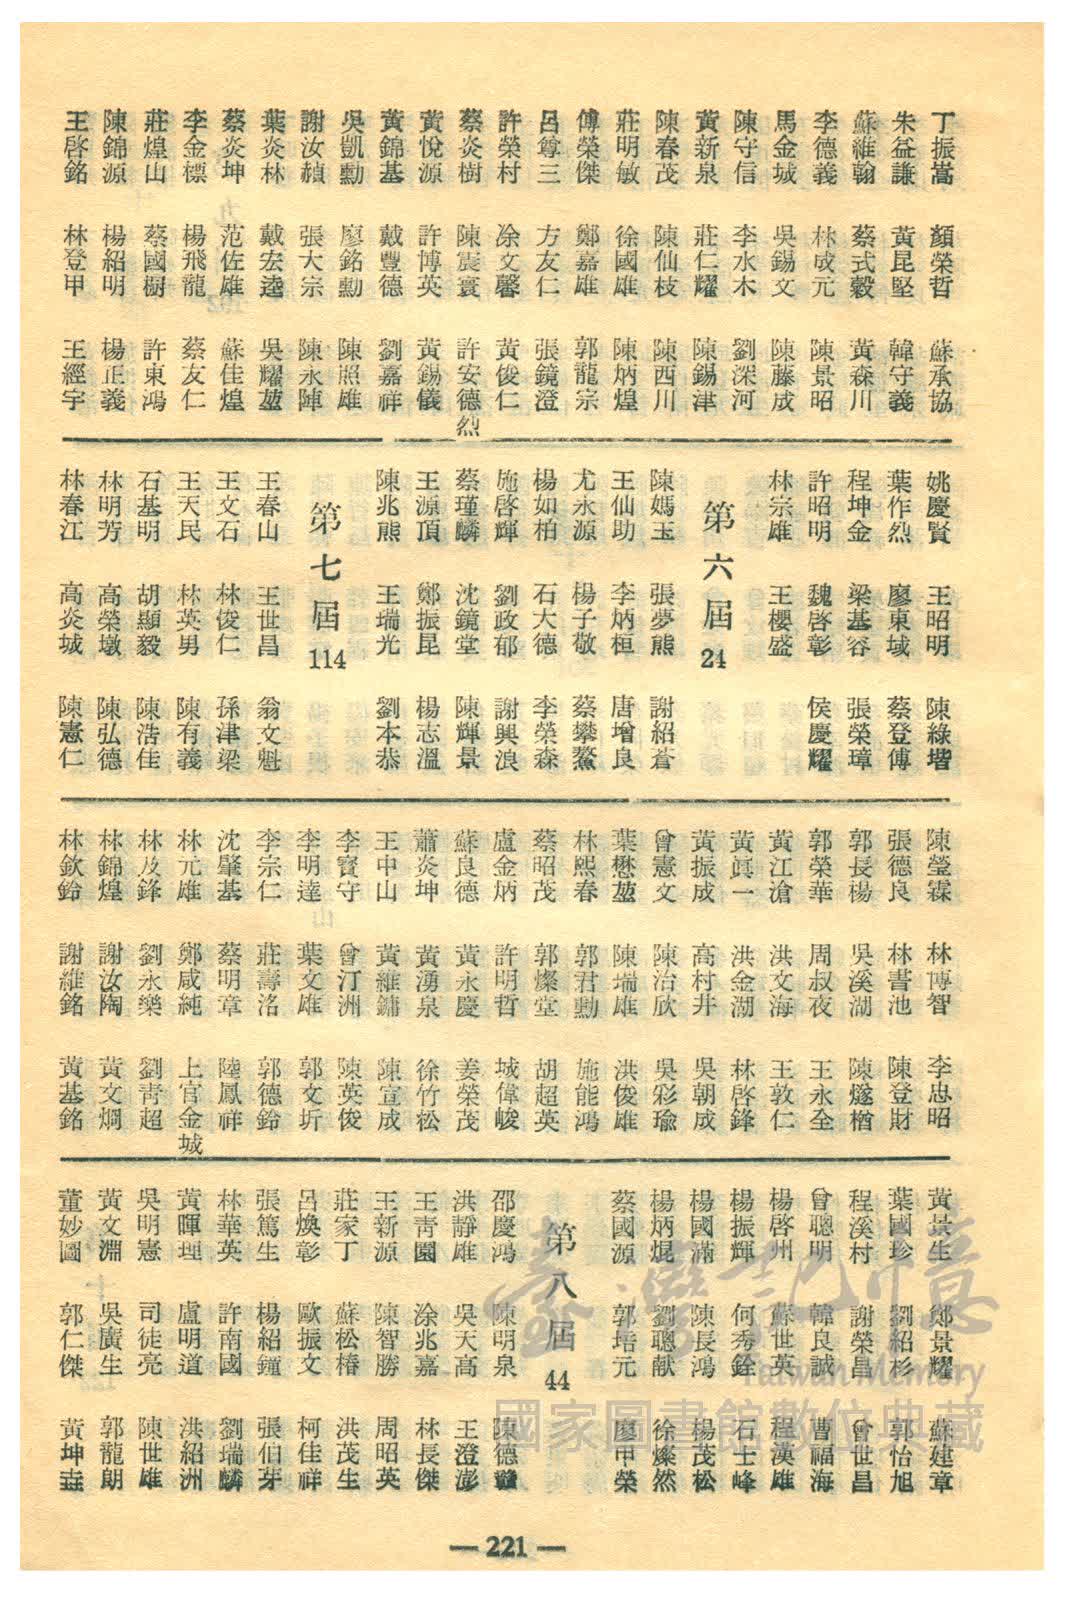 丁振嵩 顏榮哲 蘇承協
朱益謙 黃昆堅 韓守義
蘇維翰 蔡式穀 黃森川
李德義 林成元 陳景昭
馬金城 吳錫文 陳藤成
陳守信 李水木 劉深河
黃新泉 莊仁耀 陳錫津
陳春茂 陳仙枝 陳西川
莊明敏 徐國雄 陳炳煌
傅榮傑 鄭嘉雄 郭龍宗
呂尊三 方友仁 張鏡澄
許榮村 涂文馨 黃俊仁
蔡炎樹 陳震寰 許安德烈
黃悅源 許博英 黃錫儀
黃錦基 戴豐德 劉嘉祥
吳凱勳 廖銘勳 陳照雄
謝汝楨 張大宗 陳永陣
葉炎林 戴宏逵 吳耀堃
蔡炎坤 范佐雄 蘇佳煌
李金標 楊飛龍 蔡友仁
莊煌山 蔡國樹 許東鴻
陳錦源 楊紹明 楊正義
王啓銘 林登甲 王經宇
姚慶賢 王昭明 陳綠堦
葉作烈 廖東域 蔡登傳
程坤金 梁基容 張榮璋
許昭明 魏啓彰 侯慶耀
林宗雄 王櫻盛
第六屆 24
陳媽玉 張夢熊 謝紹蒼
王仙助 李炳桓 唐增良
尤永源 楊子敬 蔡攀鰲
楊如柏 石大德 李榮森
施啓輝 劉政郁 謝興浪
蔡瑾麟 沈鏡堂 陳輝景
王源頂 鄭振昆 楊志溫
陳兆熊 王瑞光 劉本恭
第七屆 114
王春山 王世昌 翁文魁
王文石 林俊仁 孫津梁
王天民 林英男 陳有義
石基明 胡顯毅 陳浩佳
林明芳 高榮墩 陳弘德
林春江 高炎城 陳憲仁
陳瑩霖 林博智 李忠昭
張德良 林書池 陳登財
郭長楊 吳溪湖 陳燧楢
郭榮華 周叔夜 王永全
黃江滄 洪文海 王敦仁
黃眞一 洪金湖 林啓鋒
黃振成 高村井 吳朝成
曾憲文 陳治欣 吳彩瑜
葉懋堃 陳瑞雄 洪俊雄
林熙春 郭君勳 施能鴻
蔡昭茂 郭燦堂 胡超英
盧金炳 許明哲 城偉峻
蘇良德 黃永慶 姜榮茂
蕭炎坤 黃湧泉 徐竹松
王中山 黃維鏞 陳宣成
李寶守 曾汀洲 陳英俊
李明達 葉文雄 郭文圻
李宗仁 莊壽洺 郭德鈴
沈肇基 蔡明章 陸鳳祥
林元雄 鄭咸純 上官金城
林及鋒 劉永樂 劉靑超
林錦煌 謝汝陶 黃文烱
林欽鈴 謝維銘 黃基銘
黃景生 鄭景耀 蘇建章
葉國珍 劉紹杉 郭怡旭
程溪村 謝榮昌 曾世昌
曾聰明 韓良誠 曹福海
楊啓州 蘇世英 程漢雄
楊振輝 何秀銓 石士峰
楊國滿 陳長鴻 楊茂松
楊炳焜 劉聰猷 徐燦然
蔡國源 郭培元 廖甲榮
第八屆 44
邵慶鴻 陳明泉 陳德
洪靜雄 吳天高 王澄澎
王靑園 涂兆嘉 林長傑
王新源 陳智勝 周昭英
莊家丁 蘇松椿 洪茂生
呂煥彰 歐振文 柯佳祥
張篤生 楊紹鐘 張伯芽
林華英 許南國 劉瑞麟
黃暉理 盧明道 洪紹洲
吳明憲 司徒亮 陳世雄
黃文淵 吳廣生 郭龍朗
董妙圖 郭仁傑 黃坤垚
— 221 —
臺灣記憶
Taiwan Memory
國家圖書館數位典藏